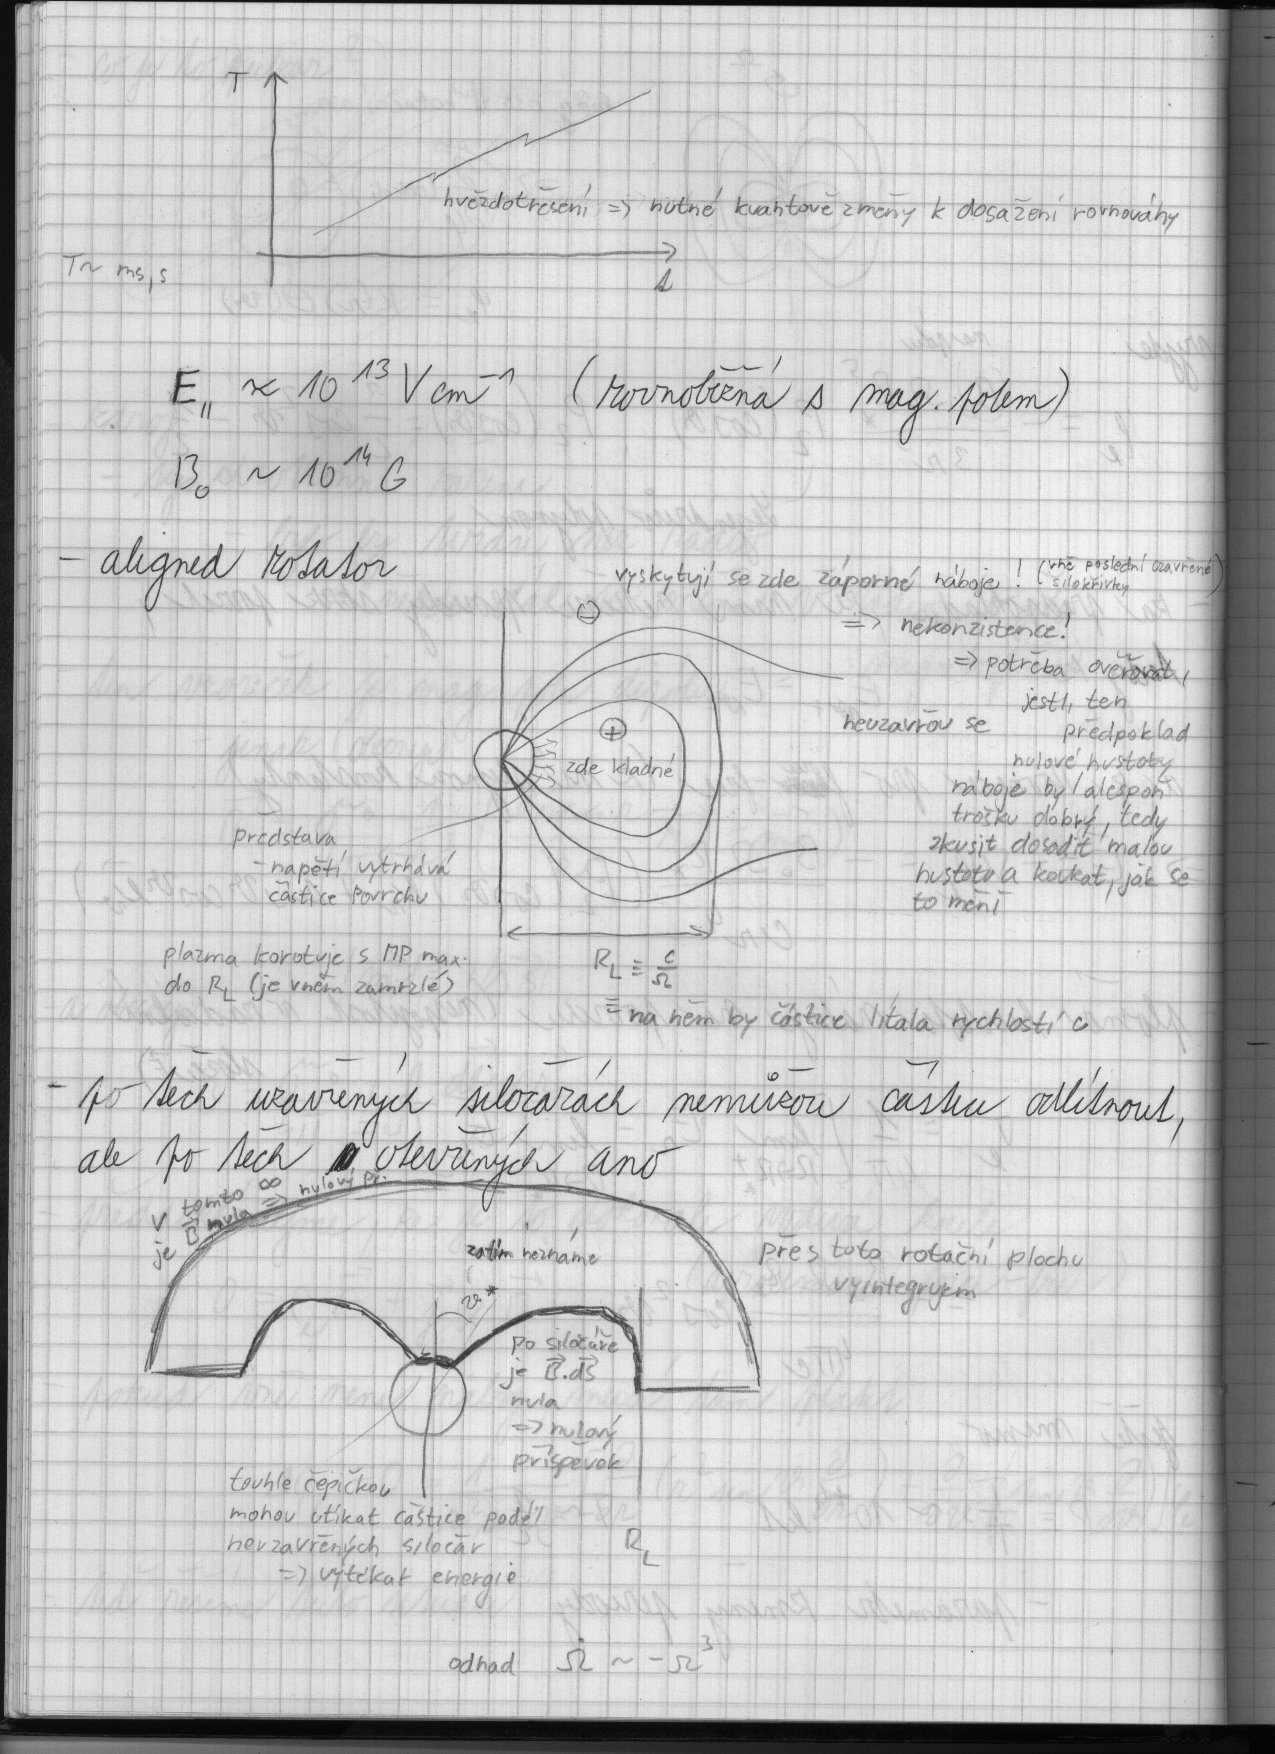 T
hvězdotřesení => nutné kvantové změny k dosažení rovnováhy
T~ ms, s
t
E∥ ≈ 10^13 V cm^-1 (rovnoběžná s mag. polem)
B₀ ~ 10^14 G
- aligned rotator
vyskytují se zde záporné náboje! (vně poslední uzavřené
siločřivky)
⊖
=> nekonzistence!
=> potřeba ověřovat,
jestli ten
neuzavřou se
předpoklad
nulové hustoty
náboje byl alespoň
trošku dobrý, tedy
zkusit dosadit malou
hustotu a koukat, jak se
to mění
⊕
zde kladné
představa
- napětí vytrhává
částice povrchu
plazma korotuje s MP max.
do R_L (je v něm zamrzlé)
R_L ≡ c/Ω
≡ na něm by částice lítala rychlostí c
- po těch uzavřených siločárách nemůžou částice odlétnout,
ale po těch otevřených ano
V tomto ∞
je B⃗ nula => nulový př.
zatím neznáme
přes tuto rotační plochu
vyintegrujem
ϑ*
po siločáře
je B⃗.dS⃗
nula
=> nulový
příspěvek
touhle čepičkou
mohou utíkat částice podél
neuzavřených siločar
=> vytékat energie
R_L
odhad Ω̇ ~ -Ω³